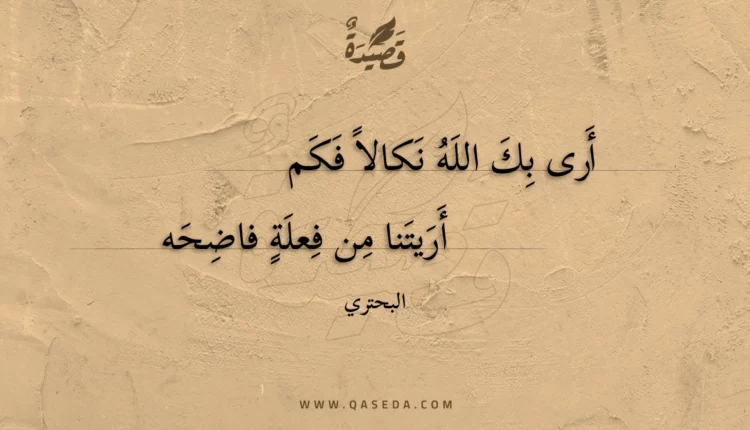 قَصِيدَةٌ
أَرى بِكَ اللَهُ نَكالاً فَكَم
أَرَيتَنا مِن فِعلَةٍ فاضِحَه
البحتري
WWW.QASEDA.COM